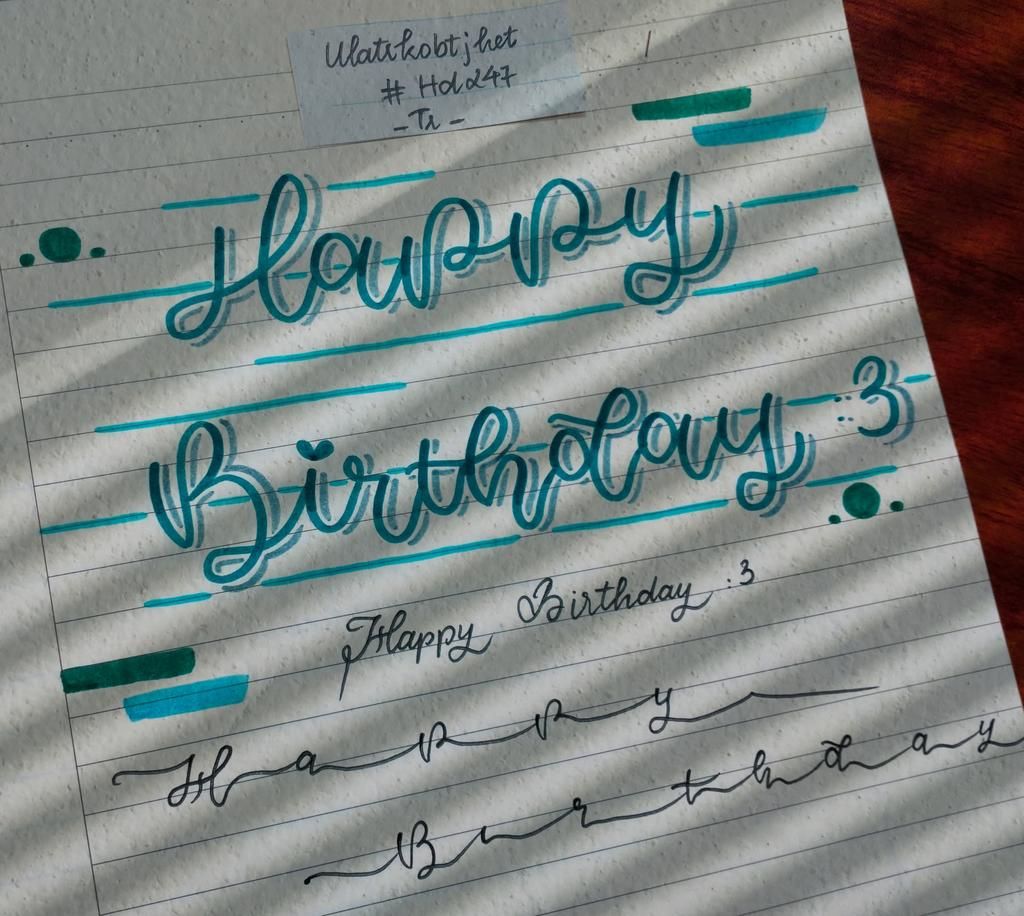 Ulatikobtjhet
# Hda247
- Tr -
Happy
Birthday :3
Happy Birthday :3
Happy
Birthday